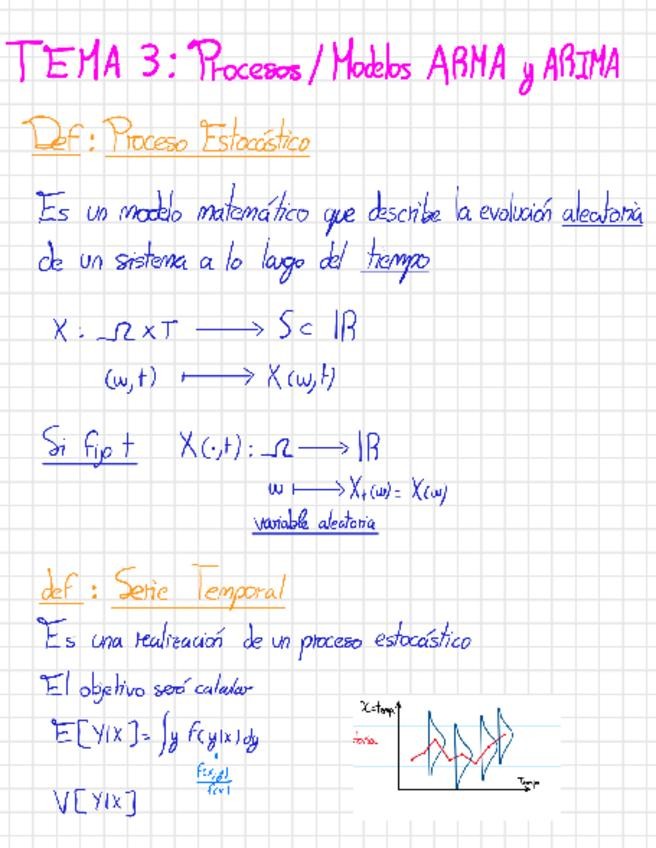 TEMA 3: Procesos / Modelos ARMA y ARIMA
Def: Proceso Estocástico
Es un modelo matemático que describe la evolución aleatoria
de un sistema a lo largo del tiempo
X: Ω x T → S ⊂ ℝ
(w,t) ↦ X(w,t)
Si fijo t X(·,t): Ω → ℝ
w ↦ X_t(w) = X(w)
variable aleatoria
def: Serie Temporal
Es una realización de un proceso estocástico
El objetivo será calcular
E[Y|X] = ∫y f(y|x) dy
f(x,y)/f(x)
V[Y|X]
X=temp
Tiempo